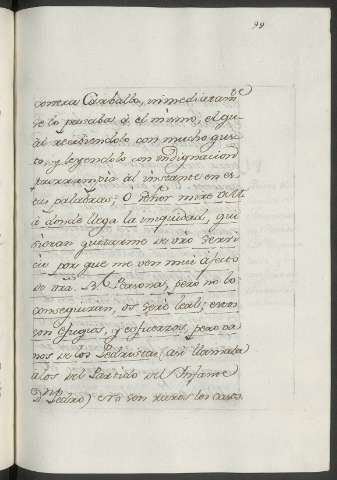 99
contra Carballo, inmediatam.te
se lo pasaba à el mismo, el qu-
àl recibiendolo con mucho gus-
to, y leyendolo con indignacion
prorrumpia àl instante en es-
tas palabras; O Señor mire V.M.
à donde llega la iniquidad, qui-
sieran quitarme de vro servi-
cio por que me ven mui afecto
de vra. R.l Corona, pero no lo
conseguiran, os seré leal; estos
son efugios, y esfuerzos, pero va-
nos de los Pedristas (asi llamaba
à los del Partido del Infante
D.n Pedro) estos son raros los casos